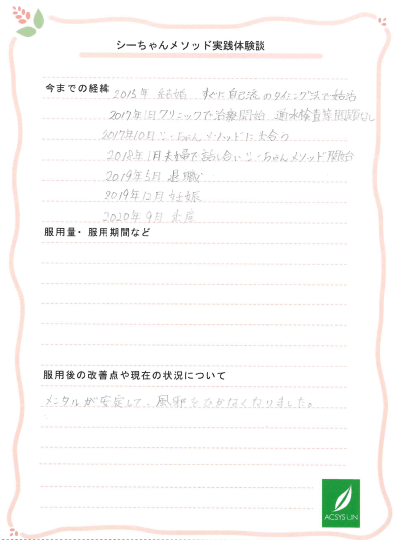 シーちゃんメソッド実践体験談
今までの経緯 2015年 結婚 すぐに自己流のタイミング法で妊活
2017年1月クリニックで治療開始 通水検査等問題なし
2017年10月シーちゃんメソッドに出会う
2018年1月夫婦で話し合いシーちゃんメソッド開始
2019年5月 退職
2019年12月 妊娠
2020年9月 出産
服用量・服用期間など
服用後の改善点や現在の状況について
メンタルが安定して、風邪をひかなくなりました。
ACSYS LIN